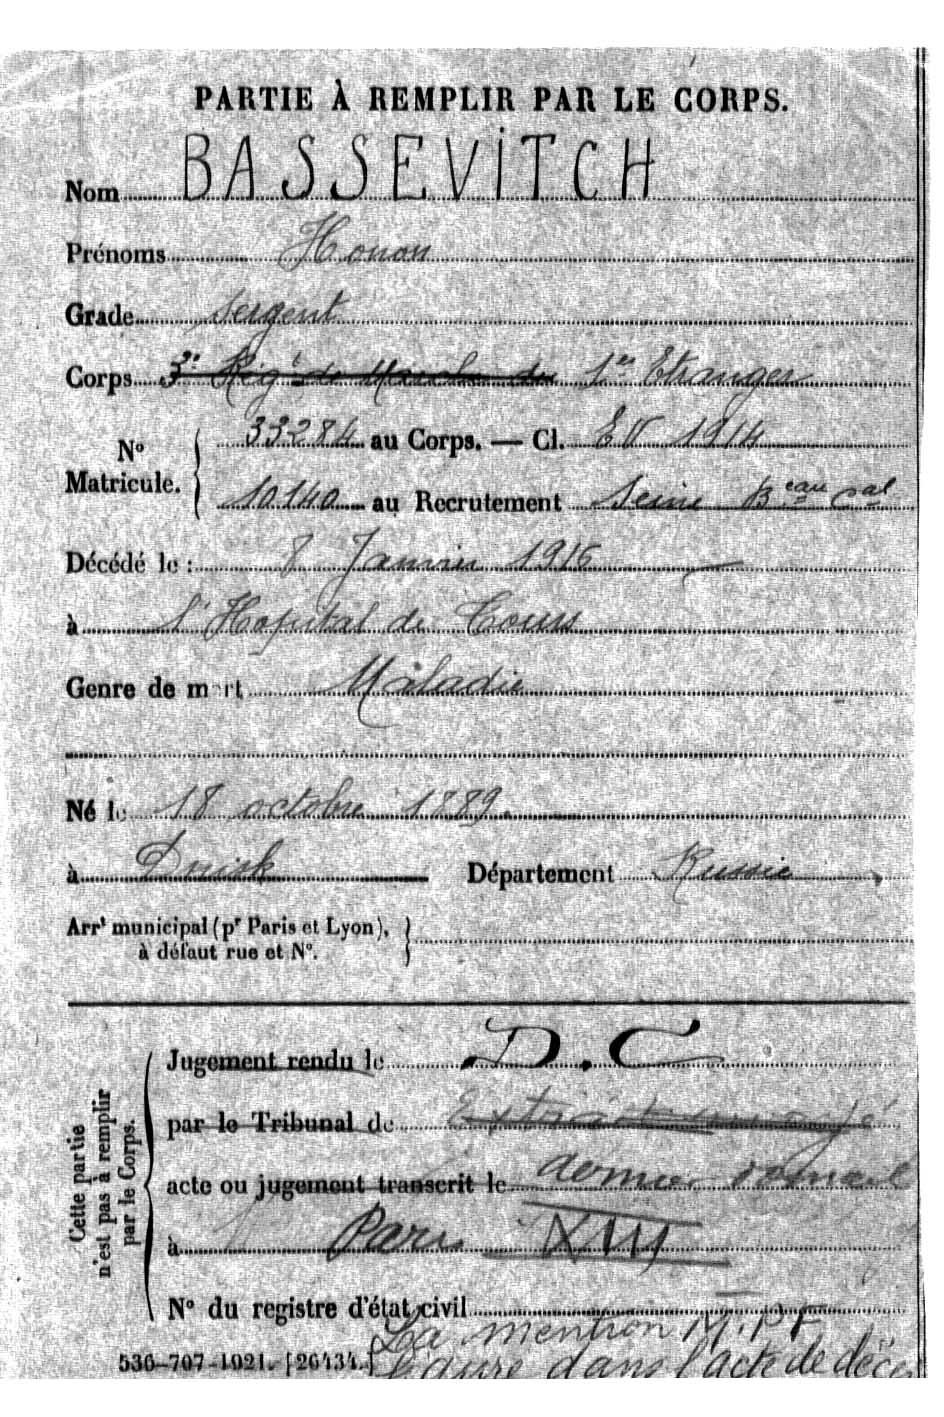 PARTIE À REMPLIR PAR LE CORPS.
Nom BASSEVITCH
Prénoms Honon
Grade Sergent
Corps 3e Régt de Marche du 1er Etranger
No Matricule. 33284 au Corps. — Cl. EV 1914
10140 au Recrutement Seine Beau Cal
Décédé le : 8 Janvier 1915
à l'Hopital de Tours
Genre de mort Maladie
Né le 18 octobre 1889.
à Dnisk Département Russie
Arrt municipal (pr Paris et Lyon),
à défaut rue et No.
Cette partie
n'est pas à remplir
par le Corps.
Jugement rendu le D.C
par le Tribunal de
acte ou jugement transcrit le
à Paris XIII
No du registre d'état civil
La mention M.P.F
figure dans l'acte de décès
536-707-1921. [26434.]